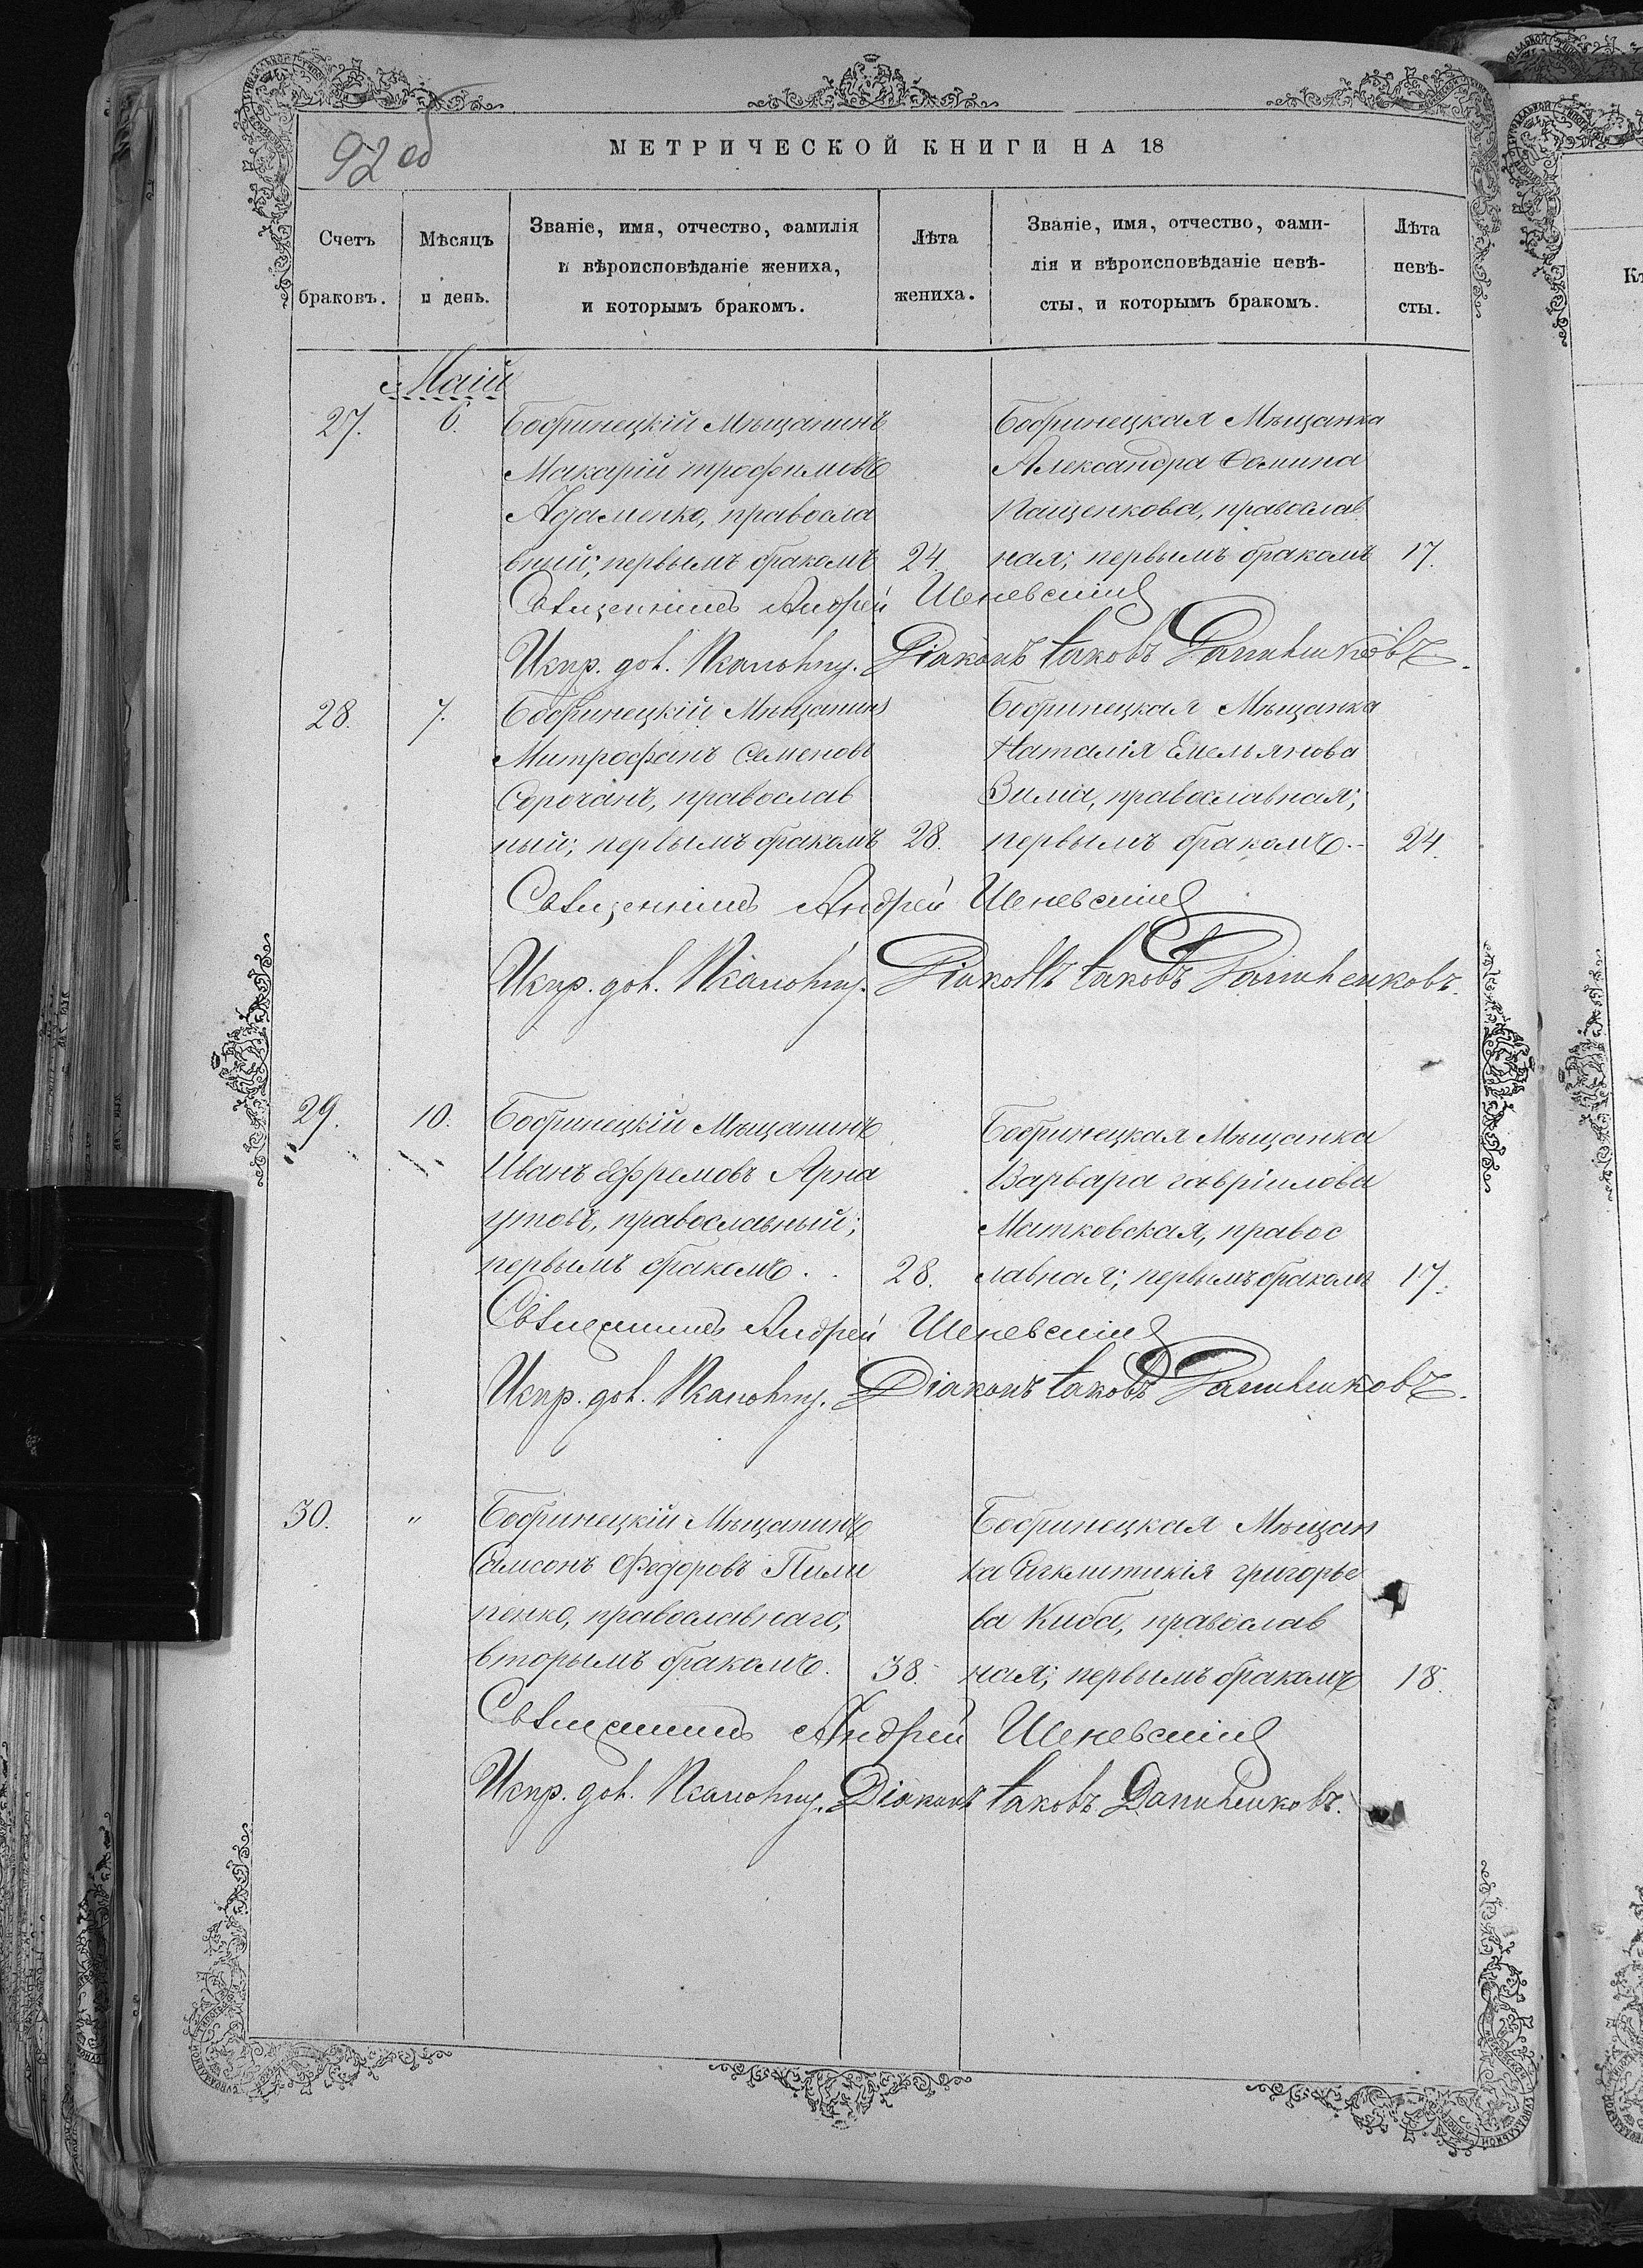 92 об
МЕТРИЧЕСКОЙ КНИГИ НА 18
Счетъ браковъ.
Мѣсяцъ и день.
Званіе, имя, отчество, фамилія
и вѣроисповѣданіе жениха,
и которымъ бракомъ.
Лѣта жениха.
Званіе, имя, отчество, фами-
лія и вѣроисповѣданіе невѣ-
сты, и которымъ бракомъ.
Лѣта невѣ-
сты.
Маій
27. 6. Бобринецкій Мѣщанинъ
Макарій трофимовъ
Адаменко, правосла
вный; первымъ бракомъ 24.
Бобринецкая Мѣщанка
Александра Ѳомина
Пащенкова, православ
ная; первымъ бракомъ 17.
Священникъ Андрей
Испр. дол. Псаломщ. Діаконъ Іаковъ
28. 7. Бобринецкій Мѣщанинъ
Митрофанъ Семеновъ
Сорочанъ, православ
ный; первымъ бракомъ 28.
Бобринецкая Мѣщанка
Наталія Емельянова
Зима, православная;
первымъ бракомъ.- 24.
Священникъ Андрей
Испр. дол. Псаломщ. Діаконъ Іаковъ
29. 10. Бобринецкій Мѣщанинъ
Иванъ Ефремовъ Арна
утовъ, православный;
первымъ бракомъ. . 28.
Бобринецкая Мѣщанка
Варвара гавріилова
Матковская, правос
лавная; первымъ бракомъ 17.
Священникъ Андрей
Испр. дол. Псаломщ. Діаконъ Іаковъ
30. " Бобринецкій Мѣщанинъ
Самсонъ Федоровъ Пили
пенко, православнаго,
вторымъ бракомъ. 38.
Бобринецкая Мѣщан
ка григорье
ва Киба, православ
ная; первымъ бракомъ 18.
Священникъ Андрей
Испр. дол. Псаломщ. Діаконъ Іаковъ